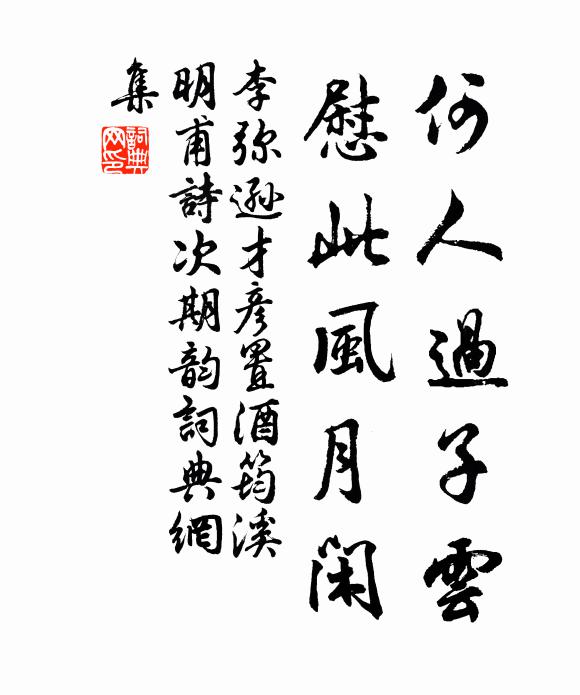 何人過子雲
慰此風月閑
李弥遜才彦置酒筠溪
明甫詩次期韵詞典網
集
詞典
网印